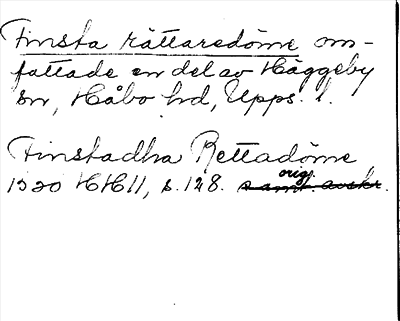 Finsta rättaredöme om-
fattade en del av Häggeby
sn, Håbo hd, Upps. l.
Finstadha Rettadöme
orig.
1520 HH II, s. 128. samt. avskr.